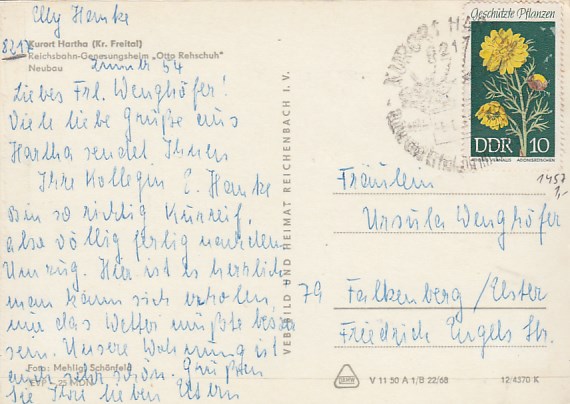 Elly Hanke
8217
Kurort Hartha (Kr. Freital)
Reichsbahn-Genesungsheim „Otto Rehschuh"
Neubau
54
Liebes Frl. Wenghöfer!
Viele liebe Grüße aus
Hartha sendet Ihnen
Ihre Kollegin E. Hanke
Bin so richtig kurreif,
also völlig fertig nach dem
Umzug. Hier ist es herrlich
man kann sich erholen,
nur das Wetter müßte besser
sein. Unsere Wohnung ist
auch sehr schön. Grüßen
Sie Ihre lieben Eltern
Foto: Mehlig, Schönfeld
VEB BILD UND HEIMAT REICHENBACH I. V.
KURORT HAR
8217
Geschützte Pflanzen
DDR 10
1457
1,-
Fräulein
Ursula Wenghöfer
79 Falkenberg/Elster
Friedrich Engels Str.
V 11 50 A 1/B 22/68
12/4370 K